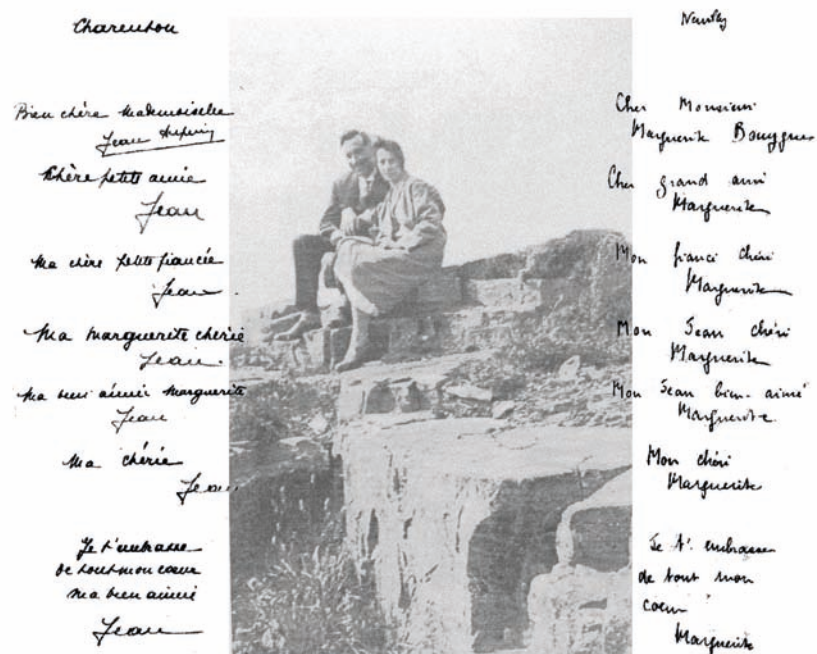 Charenton
Bien chère Mademoiselle
Jean
Chère petite amie
Jean
Ma chère petite fiancée
Jean
Ma Marguerite chérie
Jean
Ma bien aimée Marguerite
Jean
Ma chérie
Jean
Je t'embrasse
de tout mon cœur
ma bien aimée
Jean
Neuilly
Cher Monsieur
Marguerite Bouygues
Cher grand ami
Marguerite
Mon fiancé chéri
Marguerite
Mon Jean chéri
Marguerite
Mon Jean bien-aimé
Marguerite
Mon chéri
Marguerite
Je t'embrasse
de tout mon
coeur
Marguerite